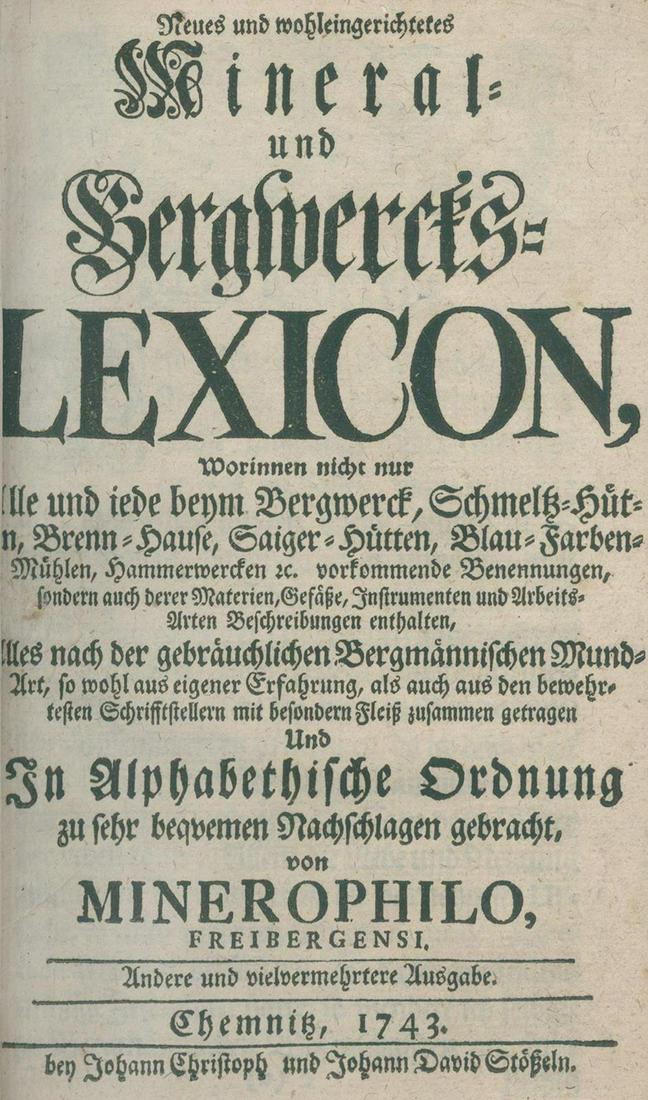 Neues und wohleingerichtetes
Mineral-
und
Bergwercks-
LEXICON,
Worinnen nicht nur
lle und iede beym Bergwerck, Schmeltz-Hüt-
n, Brenn-Hause, Saiger-Hütten, Blau-Farben-
Mühlen, Hammerwercken ꝛc. vorkommende Benennungen,
sondern auch derer Materien, Gefäße, Instrumenten und Arbeits-
Arten Beschreibungen enthalten,
lles nach der gebräuchlichen Bergmännischen Mund-
Art, so wohl aus eigener Erfahrung, als auch aus den bewehr-
testen Schrifftstellern mit besondern Fleiß zusammen getragen
Und
In Alphabethische Ordnung
zu sehr beqvemen Nachschlagen gebracht,
von
MINEROPHILO,
FREIBERGENSI.
Andere und vielvermehrtere Ausgabe.
Chemnitz, 1743.
bey Johann Christoph und Johann David Stößeln.